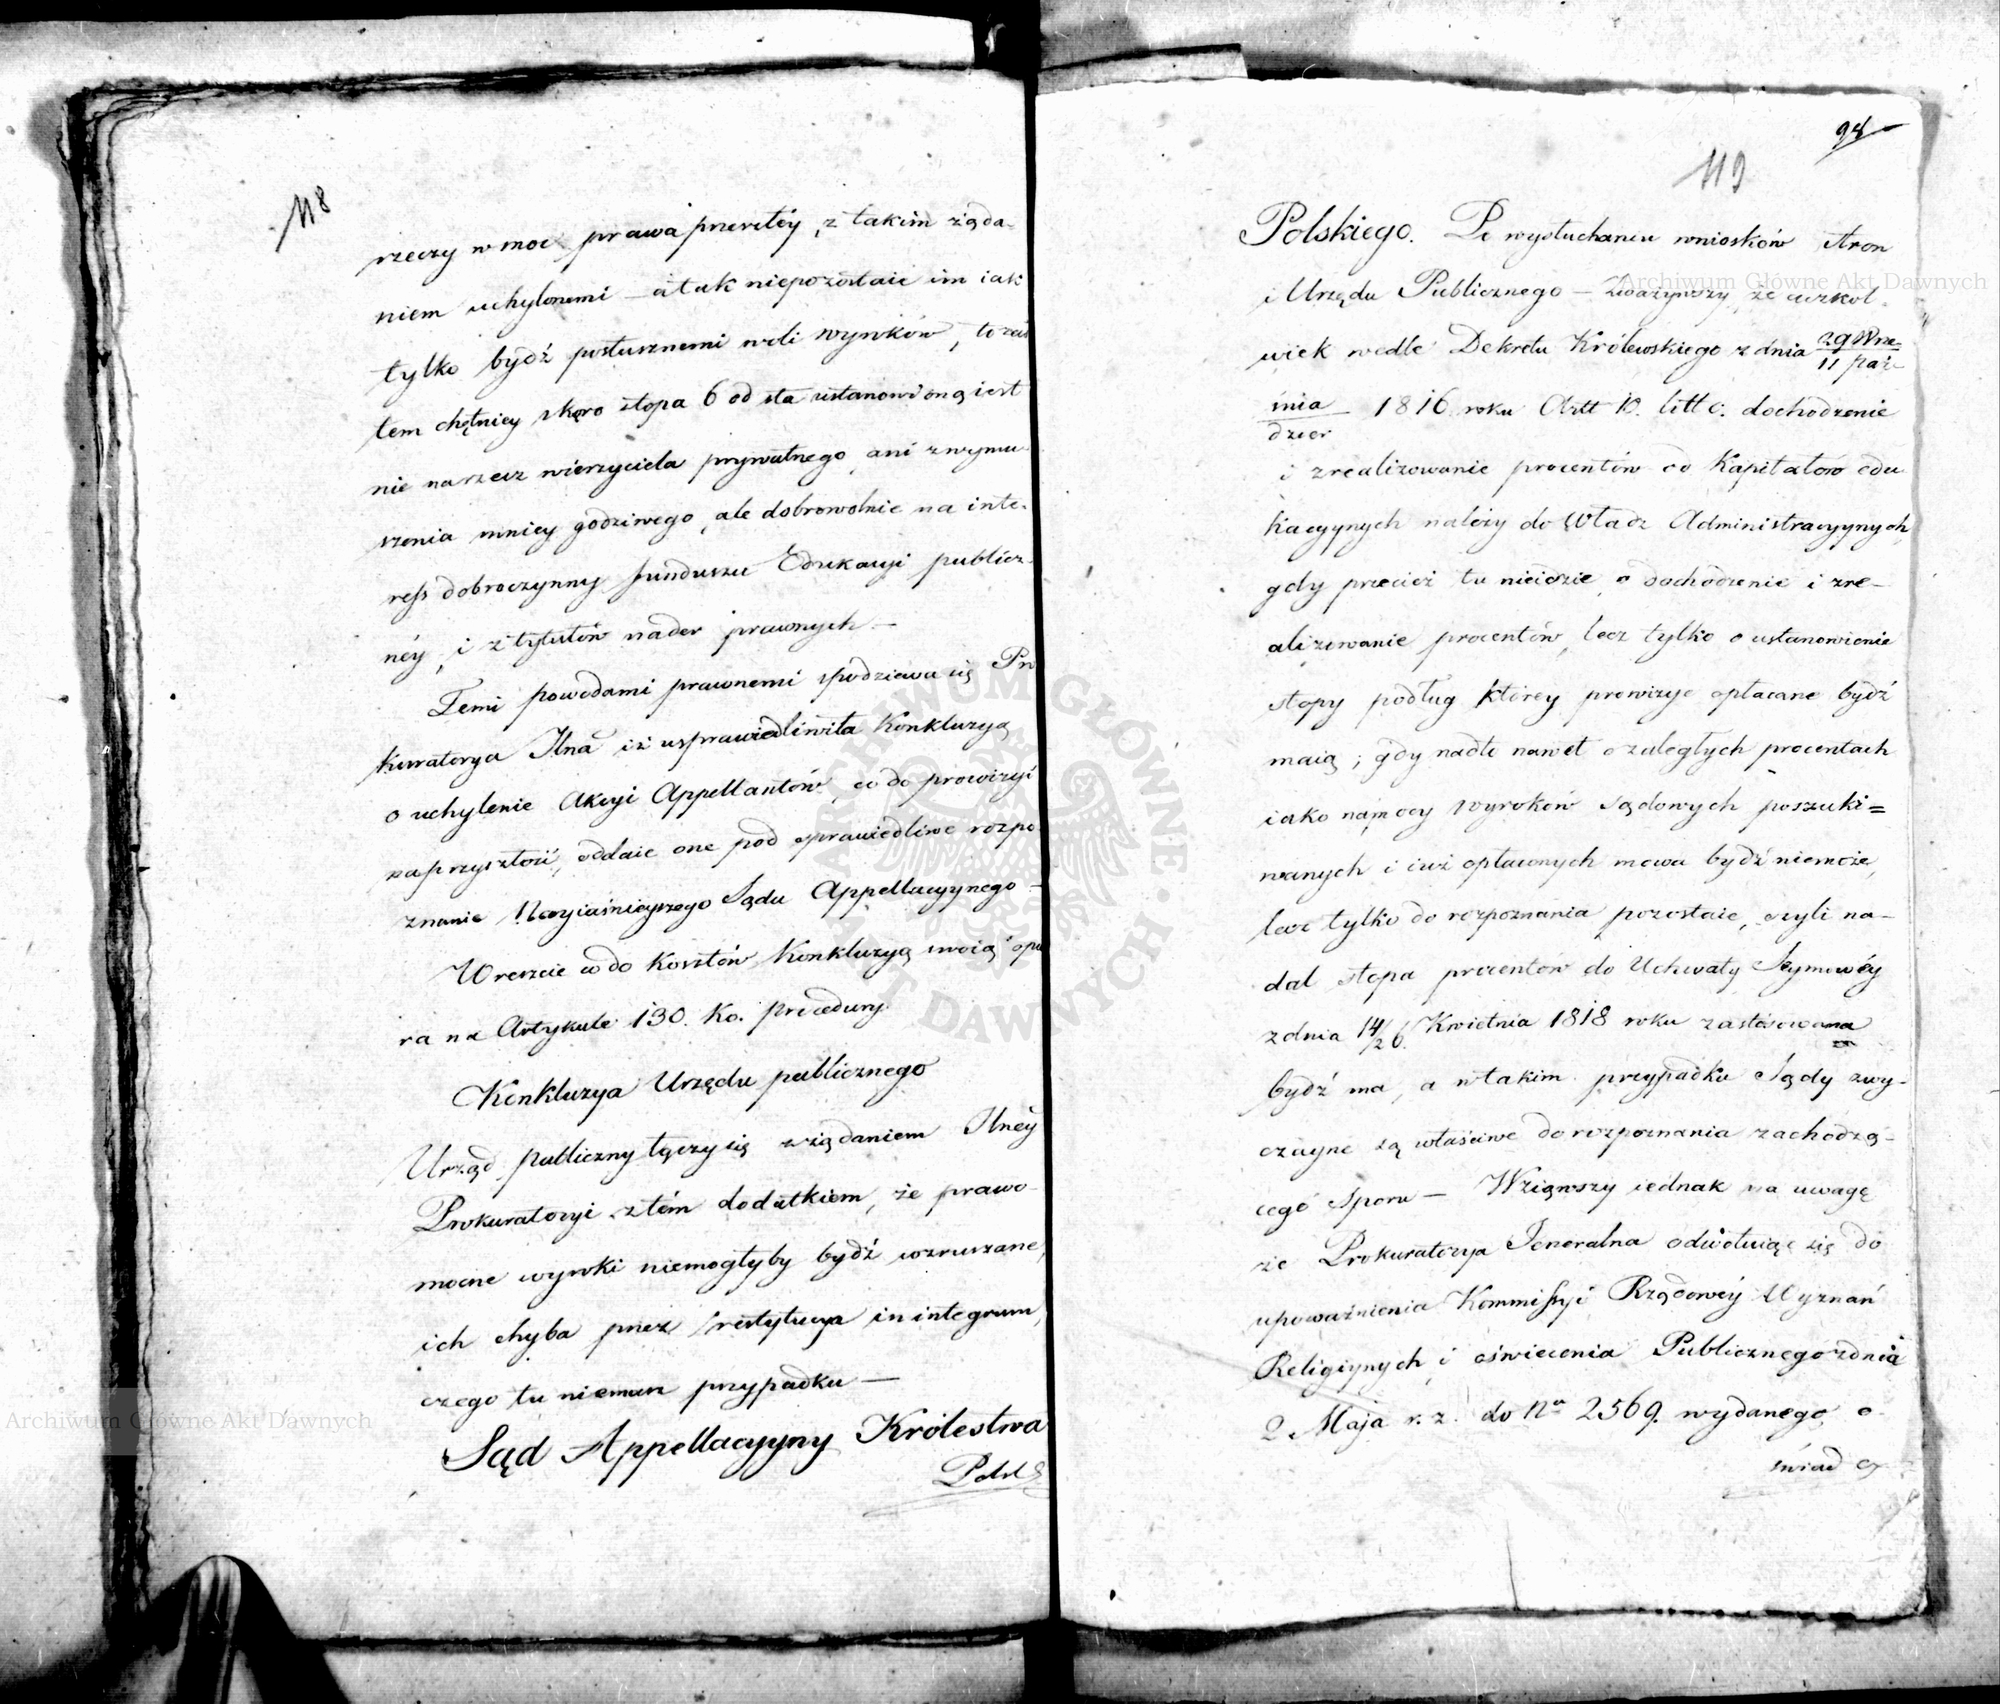 118
rzeczy w moc prawa przeszłéy, z takim żąda-
niem uchylonemi — a tak niepozostaie im iak
tylko bydź posłusznemi woli wyroków, to zaś
tem chętniey skoro stopa 6 od sta ustanowioną iest
nie narzecz wierzyciela prywatnego ani z wymu-
szenia mniey godziwego, ale dobrowolnie na inte-
ress dobroczynny funduszu Edukacyi publicz-
néy, i z tytułów nader prawnych —
Temi powodami prawnemi spodziewa się Pro
kuratorya Jlna iż usprawiedliwiła Konkluzyą
o uchylenie Akcyi Appellantów, co do prowizyi
na przyszłość, oddaie one pod sprawiedliwe rozpo
znanie Nayiaśnieyszego Sądu Appellacyynego —
Wreszcie co do Kosztów Konkluzyą swoią opie
ra na Artykule 130. Ko. procedury
Konkluzya Urzędu publicznego
Urząd publiczny łączy się z żądaniem Jlnéy
Prokuratoryi z tém dodatkiem, że prawo-
mocne wyroki niemogłyby bydź wzruszane,
ich chyba przez restytucya in integrum,
czego tu niemasz przypadku —
Sąd Appellacyyny Królestwa
Polsk
98
119
Polskiego. Po wysłuchaniu wniosków stron
i Urzędu Publicznego — Zważywszy, że aczkol-
wiek wedle Dekretu Królewskiego z dnia 29 Wrze
11 paź
śnia
dzier 1816 roku Artt 10. litt c. dochodzenie
i zrealizowanie procentów od Kapitałów edu
kacyynych należy do Władz Administracyynych,
gdy przecież tu nieidzie o dochodzenie i zre-
alizowanie procentów, lecz tylko o ustanowienie
stopy podług którey prowizye opłacane bydź
maią; gdy nadto nawet o zaległych procentach
iako na mocy wyroków sądowych poszuki=
wanych i iuż opłaconych mowa bydź niemoże,
lecz tylko do rozpoznania pozostaie, czyli na-
dal stopa procentów do Uchwały Seymowéy
z dnia 14/26 Kwietnia 1818 roku zastosowana
bydź ma, a w takim przypadku Sądy zwy-
czayne są właściwe do rozpoznania zachodzą-
cego Sporu — Wziąwszy iednak na uwagę
że Prokuratorya Jeneralna odwołuiąc się do
upoważnienia Kommissyi Rządowéy Wyznań
Religiynych i oświecenia Publicznego z dnia
2 Maja r. z. do Nru 2569. wydanego, o-
świadcz
Archiwum Główne Akt Dawnych
Archiwum Główne Akt Dawnych
ARCHIWUM GŁÓWNE · AKT DAWNYCH ·